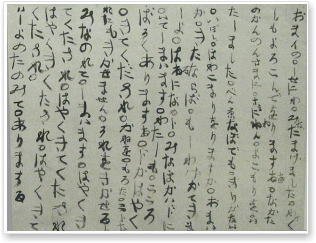 おまイの○しせにわ○みなたまけました○わたく
しもよろこんでをりまする○なかた
のかんのんさまに○さまにねん○よこもりを○いた
しました○べん京なぼでも○きりかない
○いぼし○わこまりおりますか○おまい
か○きたならば○もしわけかてきま
しよ○はるになるト○みなほかイドに
○いてしまいます○わたしも○こころ
ぼそくありまする○ドかはやく
きてくだされ○かねを○もろたこト
たれにもきかせません○それをきかせるト
みなのまれて○しまいます○はやくき
てくたされ○はやくきてくたされ
○はやくきてくたされ○はやくきて
くたされ○
いしよのたのみて○ありまする